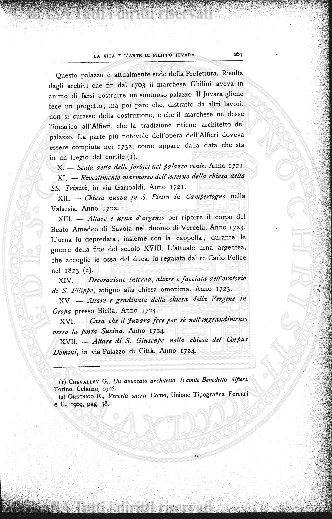 LA VITA E L'ARTE DI FILIPPO JUVARA
Questo palazzo è attualmente sede della Prefettura. Risulta
dagli archivi che fin dal 1703 il marchese Ghilini aveva in
animo di farsi costruire un suntuoso palazzo. Il Juvara gliene
fece un progetto, ma poi pare che, distratto da altri lavori,
non si curasse della costruzione, e che il marchese ne desse
l'incarico all'Alfieri, che la tradizione ritiene architetto del
palazzo. La parte più notevole dell'opera dell'Alfieri doveva
essere compiuta nel 1732, come appare dalla data che sta
in un fregio del cortile (1).
X. — Scala detta delle forbici nel palazzo reale. Anno 1721.
XI. — Rivestimento marmoreo dell'interno della chiesa della
SS. Trinità, in via Garibaldi. Anno 1721.
XII. — Chiesa nuova in S. Pietro in Campertogno nella
Valsesia. Anno 1722.
XIII. — Altare e urna d'argento per riporre il corpo del
Beato Amedeo di Savoia nel duomo di Vercelli. Anno 1723.
L'urna fu depredata, insieme con la cappella, durante le
guerre della fine del secolo XVIII. L'attuale urna argentea,
che accoglie le ossa del duca fu regalata dal re Carlo Felice
nel 1823 (2).
XIV. — Decorazione interna, altare e facciata dell'oratorio
di S. Filippo, attiguo alla chiesa omonima. Anno 1723.
XV. — Altare e gradinata della chiesa della Vergine in
Oropa presso Biella. Anno 1724.
XVI. — Casa che il Juvara fece per sè nell'ingrandimento
verso la porta Susina. Anno 1724.
XVII. — Altare di S. Giuseppe nella chiesa del Corpus
Domini, in via Palazzo di Città. Anno 1724.
(1) CHEVALLEY G., Un avvocato architetto. Il conte Benedetto Alfieri.
Torino, Celanza, 1916.
(2) ORSENIGO R., Vercelli sacra. Como, Unione Tipografica Ferrari
e C., 1909, pag. 38.